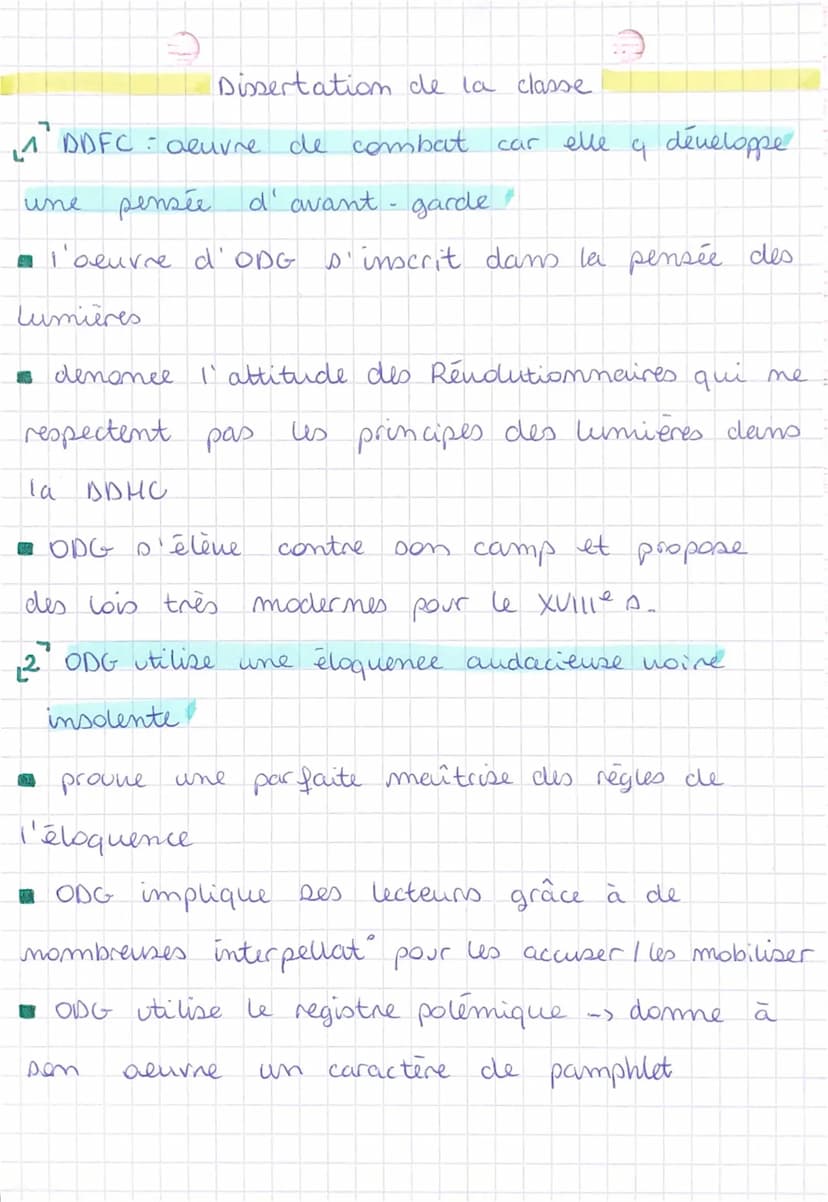 Dissertation de la classe
1 DDFC : oeuvre de combat car elle y développe
une pensée d'avant-garde
l'oeuvre d'ODG s'inscrit dans la pensée des
lumières
denonce l'attitude des Révolutionnaires qui ne
respectent pas les principes des lumières dans
la DDHC
ODG s'élève contre son camp et propose
des lois très modernes pour le XVIIIe s.
2 ODG utilise une éloquence audacieuse voire
insolente
prouve une parfaite maîtrise des règles de
l'éloquence
ODG implique ses lecteurs grâce à de
nombreuses interpellat° pour les accuser / les mobiliser
ODG utilise le registre polémique -> donne à
son oeuvre un caractère de pamphlet